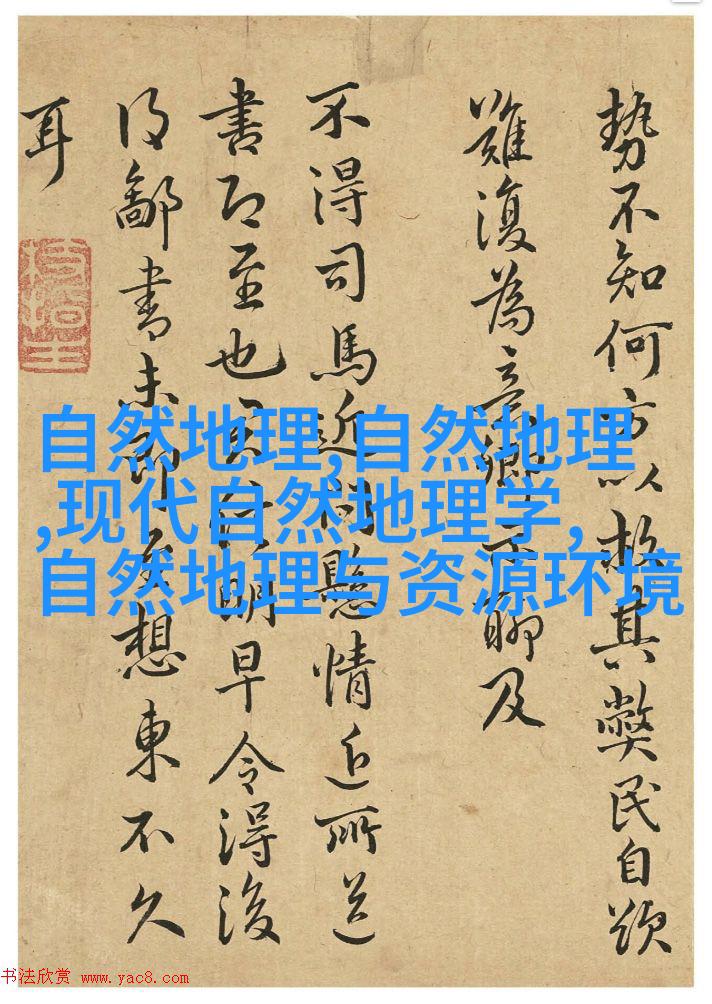 势不知何方以救其弊民自
復為卿聊及
不得司馬近問懸情近所送
書即至也行明早令得後
鄙書未即想東不久
耳
自然地理,自然地理
,现代自然地理学,
自然地理与资源环境
书法欣赏 www.yac8.com